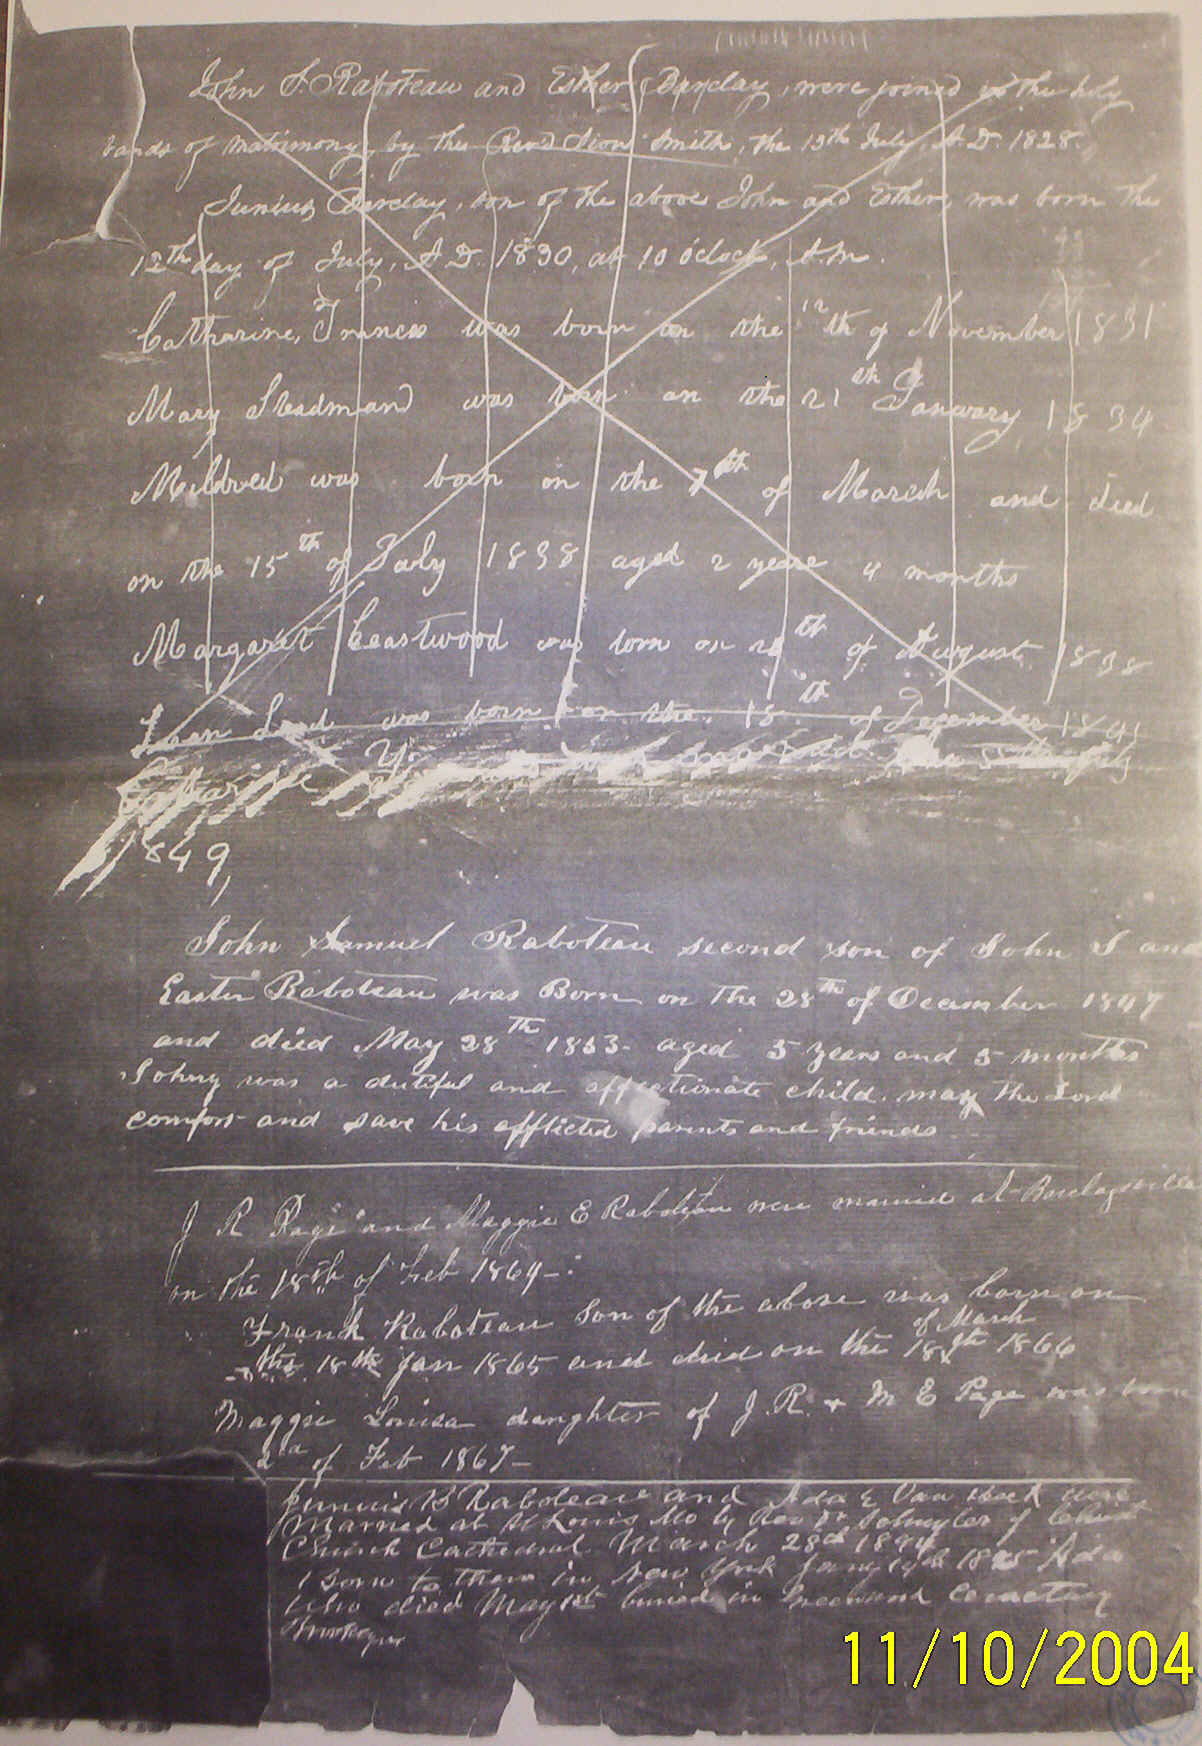 John S. Raboteau and Esther Barclay, were joined in the holy
bands of matrimony, by the Revd Sion Smith, the 13th July, A.D. 1828.
Junius Barclay, son of the above John and Esther, was born the
12th day of July, A.D. 1830, at 10 o'clock, A.M.
Catharine, Frances was born on the 12th of November 1831
Mary Steadman was born on the 21th January 1834
Mildred was born on the 7th of March and died
on the 15th of July 1838 aged 2 years 4 months
Margaret Eastwood was born on th of August 1838
was born on the 18th of December 1841
1849,
John Samuel Raboteau second son of John S and
Easter Raboteau was Born on the 28th of December 1847
and died May 28th 1853 - aged 5 years and 5 months
Johny was a dutiful and affectionate child. may the Lord
comfort and save his afflicted parents and friends
J R Page and Maggie E Raboteau were married at Barclaysville
on the 18th of Feb 1864 -
Frank Raboteau Son of the above was born on
of March
the 18th Jan 1865 and died on the 18th 1866
Maggie Louisa daughter of J. R. + M E Page was born
of Feb 1867 -
Junius B Raboteau and Ada E Van were
Married at St Louis Mo by Rev Dr Schuyler of Christ
Church Cathedral March 28th 1894
Born to them in New York Jany 19th 1895 Ada
who died May 1st buried in Greenwood Cemetery
11/10/2004